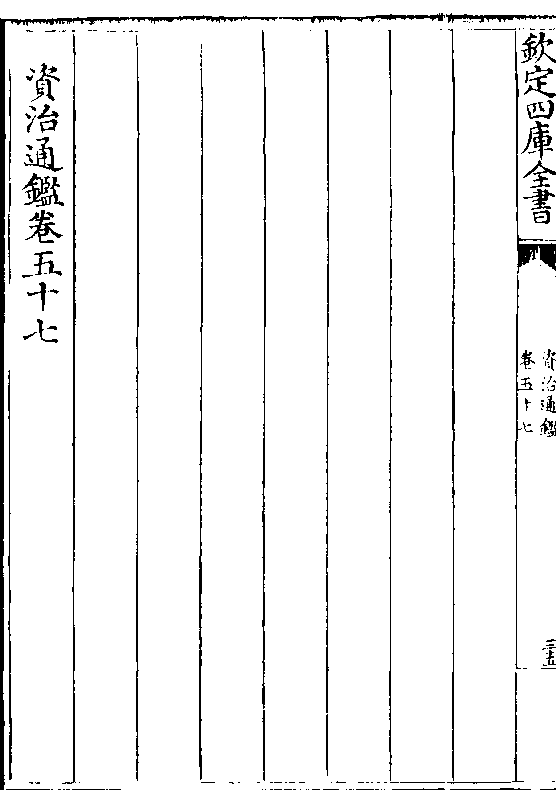 欽定四庫全書
資治通鑑
卷五十七
三五
資治通鑑卷五十七